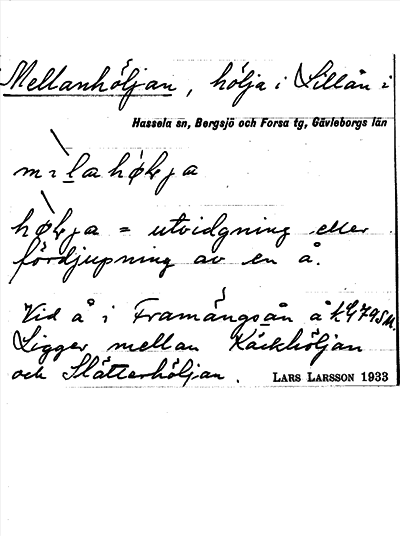 Mellanhöljan, hölja i Lillån i
Hassela sn, Bergsjö och Forsa tg, Gävleborgs län
= utvidgning eller
fördjupning av en å.
Vid å i Framängsån å
Ligger mellan Käckhöljan
och Slåtterhöljan.
LARS LARSSON 1933